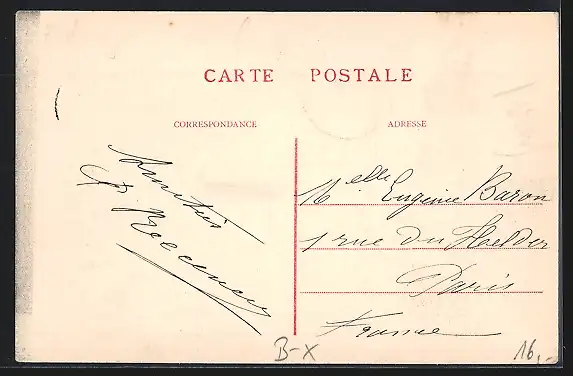 CARTE POSTALE
CORRESPONDANCE
ADRESSE
Amitiés
Melle Eugénie Baron
1 rue du Helder
Paris
France
B-X
16,-